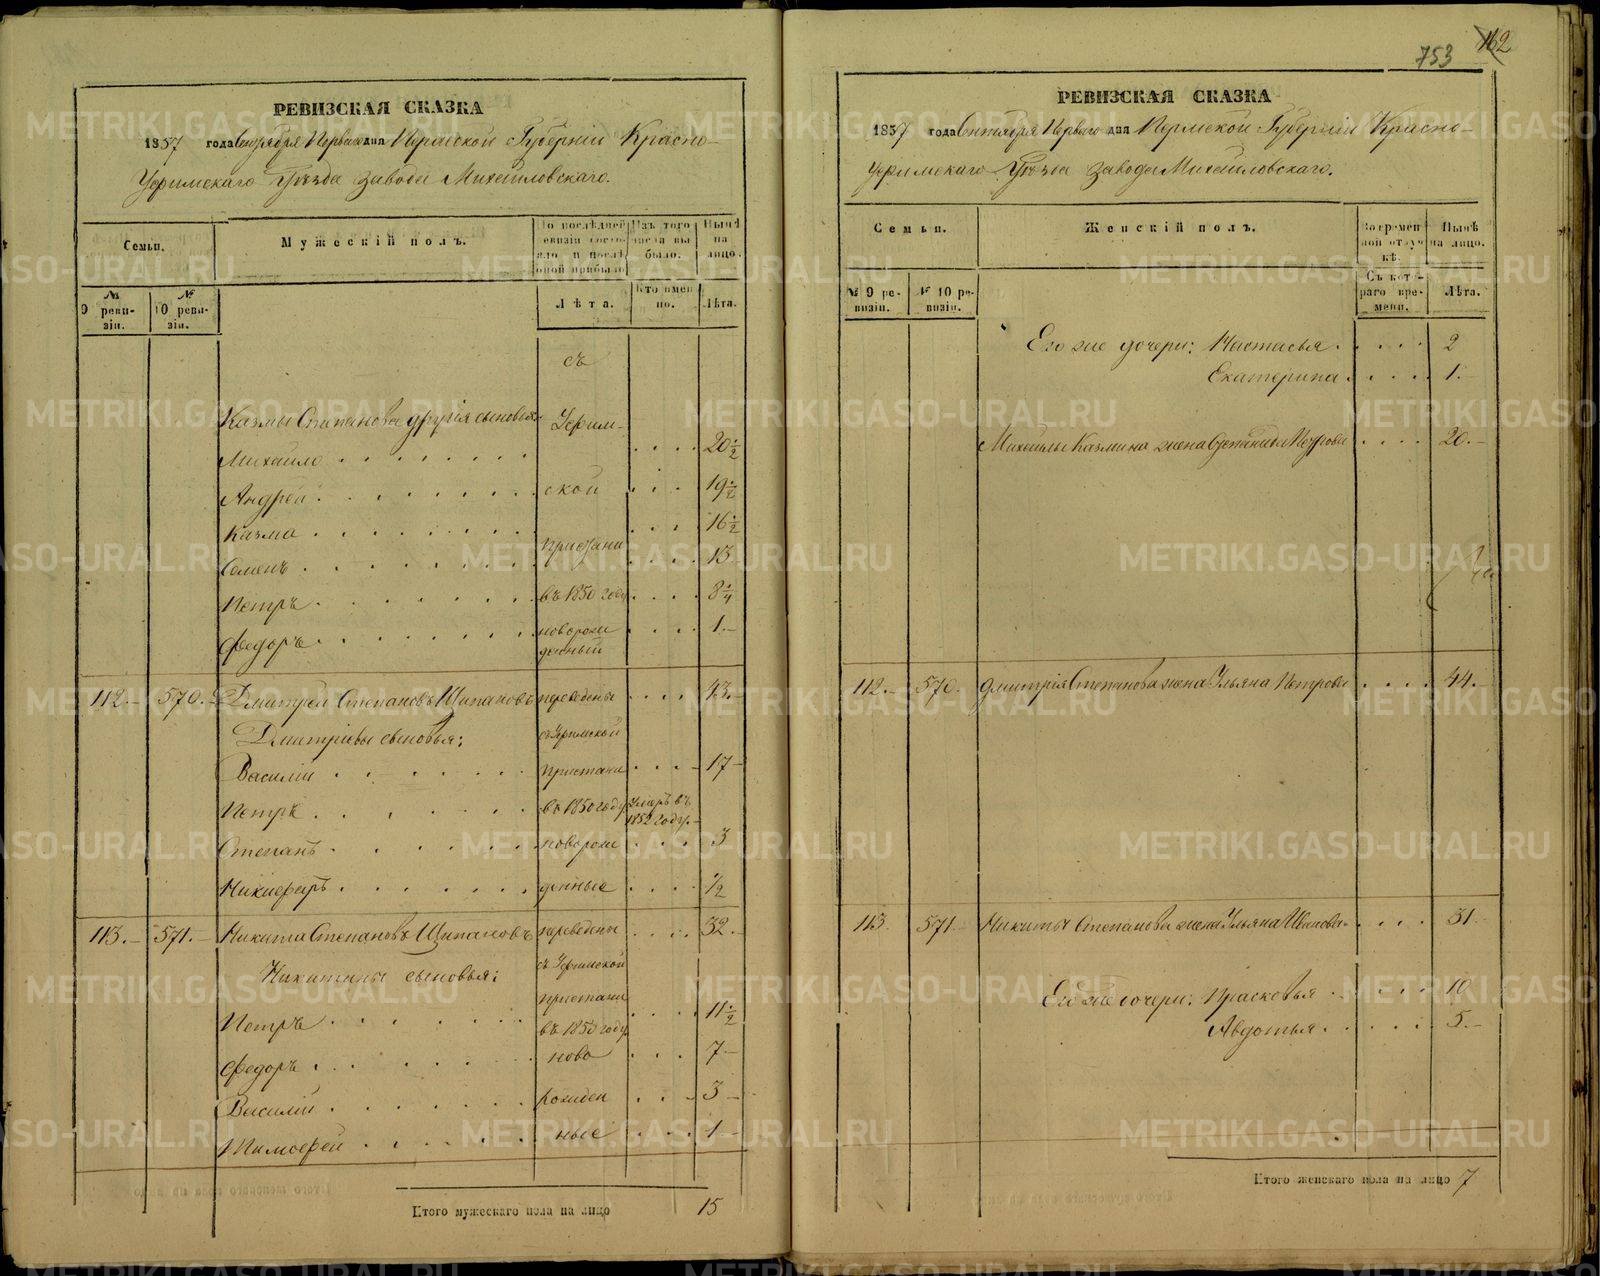 РЕВИЗСКАЯ СКАЗКА
1857 года Сентября Перваго дня Пермской Губерніи Красно-
Уфимскаго Уѣзда завода Михайловскаго.
Семьи.
Мужескій полъ.
По послѣдней ревизіи состояло и послѣ оной прибыло
Изъ того числа выбыло.
Нынѣ на лицо.
№ 9 ревизіи.
№ 10 ревизіи.
Лѣта.
Кто именно.
Лѣта.
съ
Казмы Степанова другія сыновья
Уфим-
Михайло 20 1/2
Андрей ской 19 1/2
Казма 16 1/2
пристани
Семенъ 13
Петръ въ 1850 году 8 1/4
Федоръ новорожденный 1
112 570 Дмитрей Степановъ Щипановъ переведены 43
Дмитріевы сыновья; съ Уфимской
Василій пристани 17
Петръ въ 1850 году умеръ въ 1852 году
Степанъ новорож 3
Никифоръ денные 1/2
113 571 Никита Степановъ Щипановъ переведены 32
съ Уфимской
Никитины сыновья:
пристани
Петръ въ 1850 году 11 1/2
Федоръ ново 7
Василій рожден 3
Тимофей ные 1
Итого мужескаго пола на лицо 15
753
162
РЕВИЗСКАЯ СКАЗКА
1857 года Сентября Перваго дня Пермской Губерніи Красно-
Уфимскаго Уѣзда завода Михайловскаго.
Семьи.
Женскій полъ.
Во временной отлучкѣ.
Нынѣ на лицо.
№ 9 ревизіи.
№ 10 ревизіи.
Съ котораго времени.
Лѣта.
Его же дочери: Настасья 2
Екатерина 1
Михайлы Казмина жена Степанида Петрова 20
112 570 Дмитрія Степанова жена Ульяна Петрова 44
113 571 Никиты Степанова жена Ульяна Иванова 31
Его же дочери: Прасковья 10
Авдотья 5
Итого женскаго пола на лицо 7
METRIKI.GASO-URAL.RU